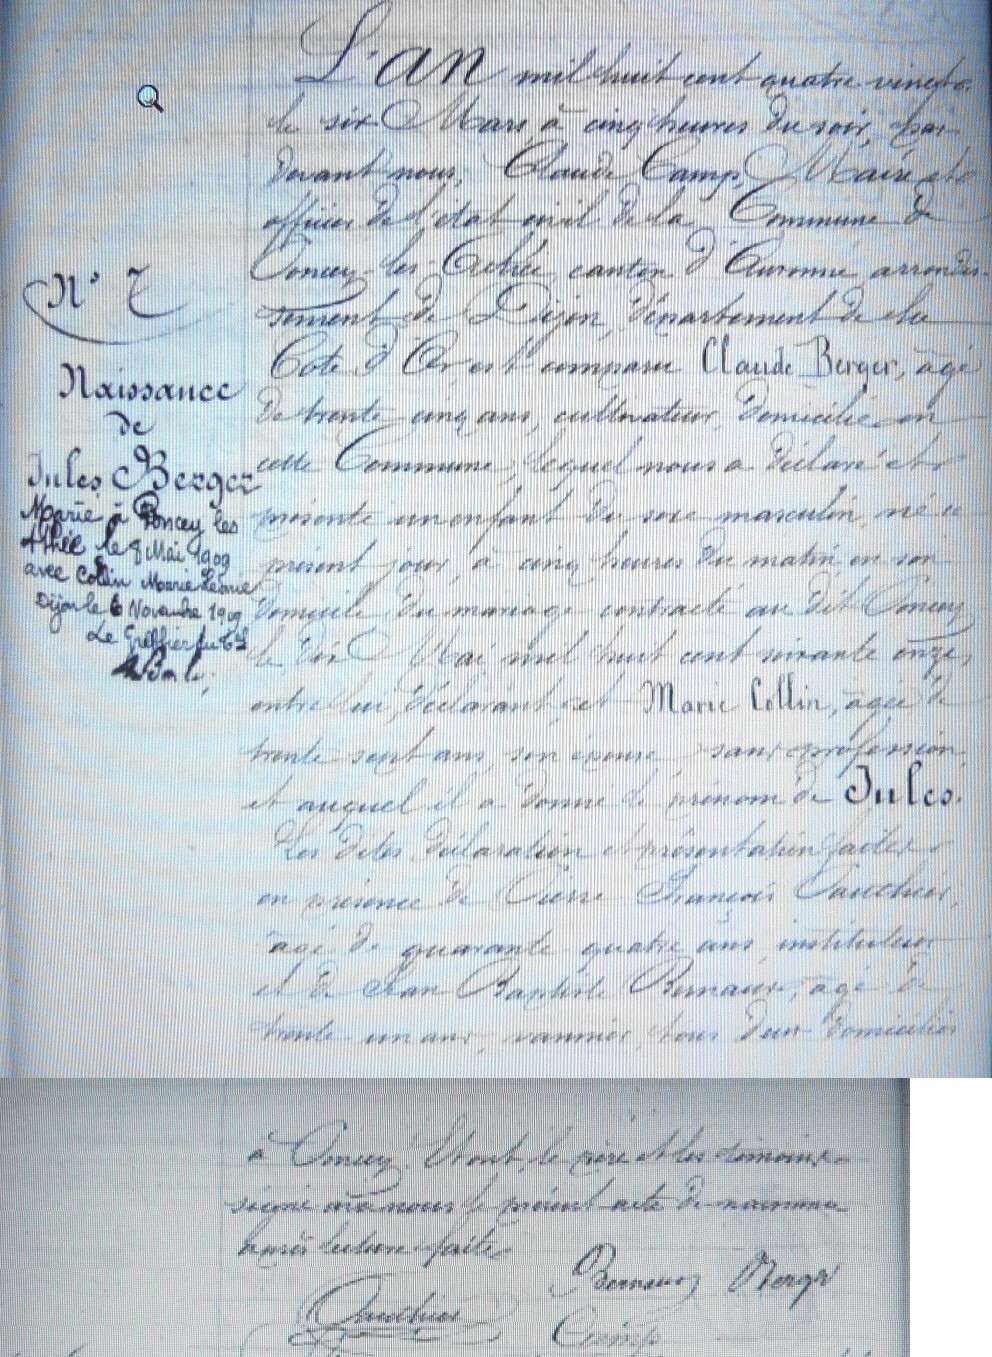 L'an mil huit cent quatre vingts
le six Mars à cinq heures du soir, par
devant nous, Claude Camp, Maire et
officier de l'état civil de la Commune de
Poncey-les-Athée canton d'Auxonne arrondis-
N° 7
sement de Dijon, département de la
Cote d'Or, est comparu Claude Berger, âgé
Naissance
de
Jules Berger
de trente cinq ans, cultivateur, domicilié en
cette Commune, lequel nous a déclaré et
Marié à Poncey les
Athée le 8 Mai 1909
avec Collin Marie Léonie
Dijon le 6 Novembre 1909
Le Greffier
présenté un enfant du sexe masculin né ce
présent jour, à cinq heures du matin en son
domicile du mariage contracté au dit Poncey
le dix Mai mil huit cent soixante onze,
entre lui, déclarant, et Marie Collin, âgée de
trente sept ans, son épouse sans profession
et auquel il a donné le prénom de Jules.
Les dites déclaration et présentation faites
en présence de Pierre François Gauthier,
âgé de quarante quatre ans, instituteur
et de Jean Baptiste, âgé de
trente un ans, vannier, tous deux domiciliés
à Poncey. Et ont, le père et les témoins
signé avec nous le présent acte de naissance
après lecture faite.
Berger
Gauthier
Camp